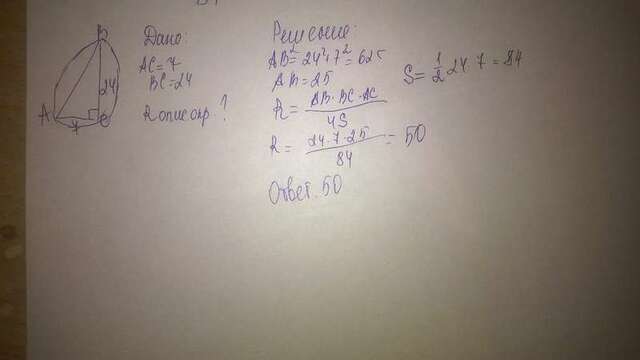 B
24
A
C
7
Дано:
AC=7
BC=24
R опис окр. ?
Решение:
AB²=24²+7²=625
AB=25
R= AB·BC·AC
4S
R= 24·7·25 = 50
84
Ответ. 50
S= 1/2 24 7 = 84